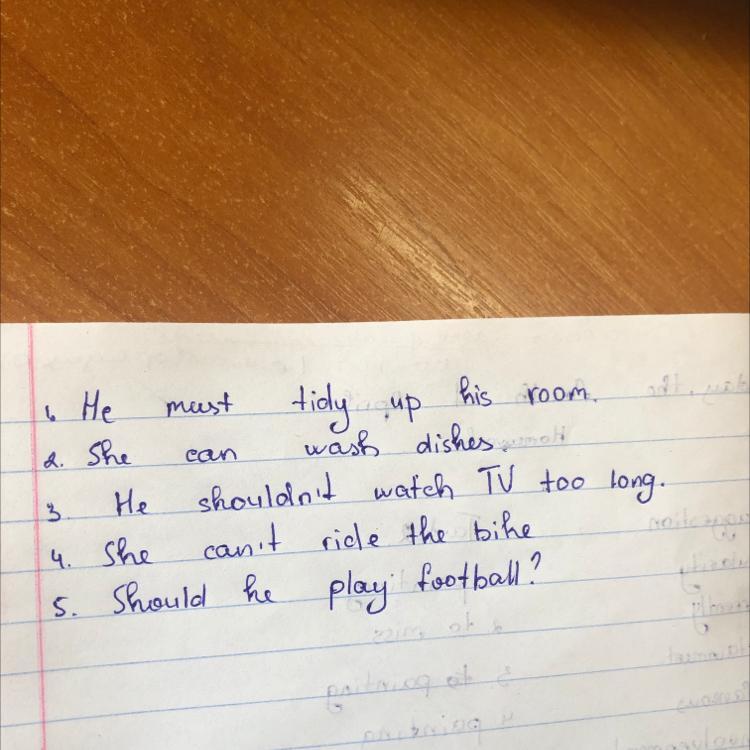 1. He must tidy up his room.
2. She can wash dishes.
3. He shouldn't watch TV too long.
4. She can't ride the bike
5. Should he play football?